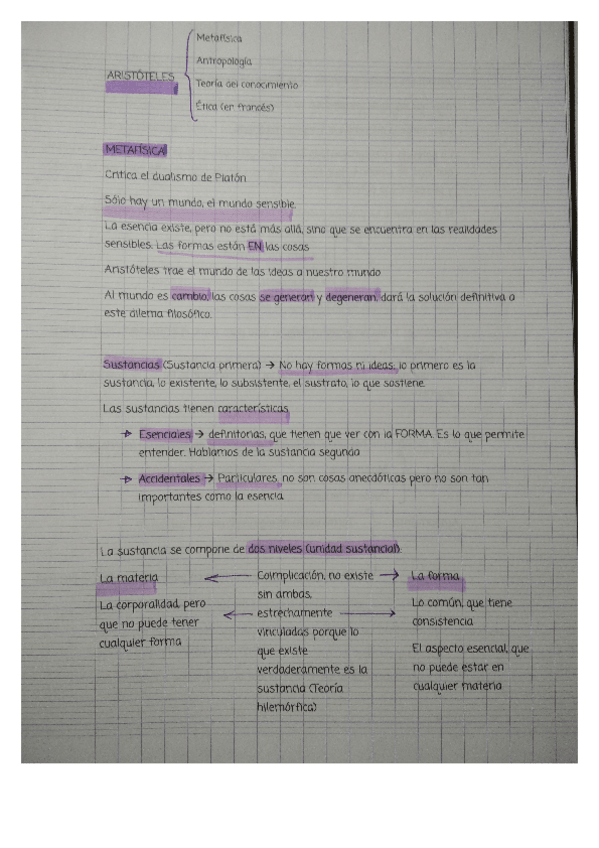 Metafísica
Antropología
ARISTÓTELES
Teoría del conocimiento
Ética (en francés)
METAFÍSICA
Critica el dualismo de Platón
Sólo hay un mundo, el mundo sensible.
La esencia existe, pero no está más allá, sino que se encuentra en las realidades
sensibles. Las formas están EN las cosas
Aristóteles trae el mundo de las ideas a nuestro mundo
Al mundo es cambio, las cosas se generan y degeneran. dará la solución definitiva a
este dilema filosófico.
Sustancias (Sustancia primera) → No hay formas ni ideas, lo primero es la
sustancia, lo existente, lo subsistente, el sustrato, lo que sostiene
Las sustancias tienen características
Esenciales → definitorias, que tienen que ver con la FORMA. Es lo que permite
entender. Hablamos de la sustancia segunda
Accidentales → Particulares, no son cosas anecdóticas pero no son tan
importantes como la esencia
La sustancia se compone de dos niveles (unidad sustancial).
La materia ← Coimplicación, no existe → La forma
sin ambas,
La corporalidad, pero ← estrechamente → Lo común, que tiene
que no puede tener vinculadas porque lo consistencia
cualquier forma que existe El aspecto esencial, que
verdaderamente es la no puede estar en
sustancia (Teoría cualquier materia
hilemórfica)